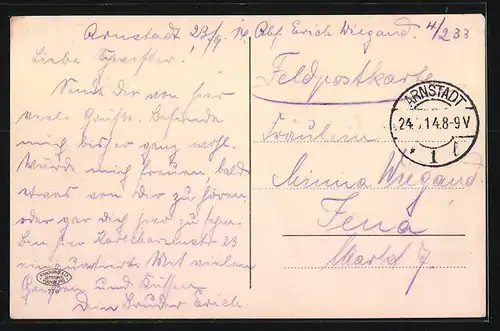 Arnstadt, 23/9. 14 Abs. Erich Wiegand. 4/233
Liebe Schwester.
Sende dir von hier
viele Grüße. Befinde
mich bisher ganz wohl.
Würde mich freuen, bald
etwas von Dir zu hören,
oder gar dich hier zu sehen.
Bin hier 23
einquartiert. Mit vielen
Grüßen und Küssen
Dein Bruder Erich.
Feldpostkarte
ARNSTADT
24. .14.8-9V
* 1
Fräulein
Minna Wiegand
Jena
Markt 7.